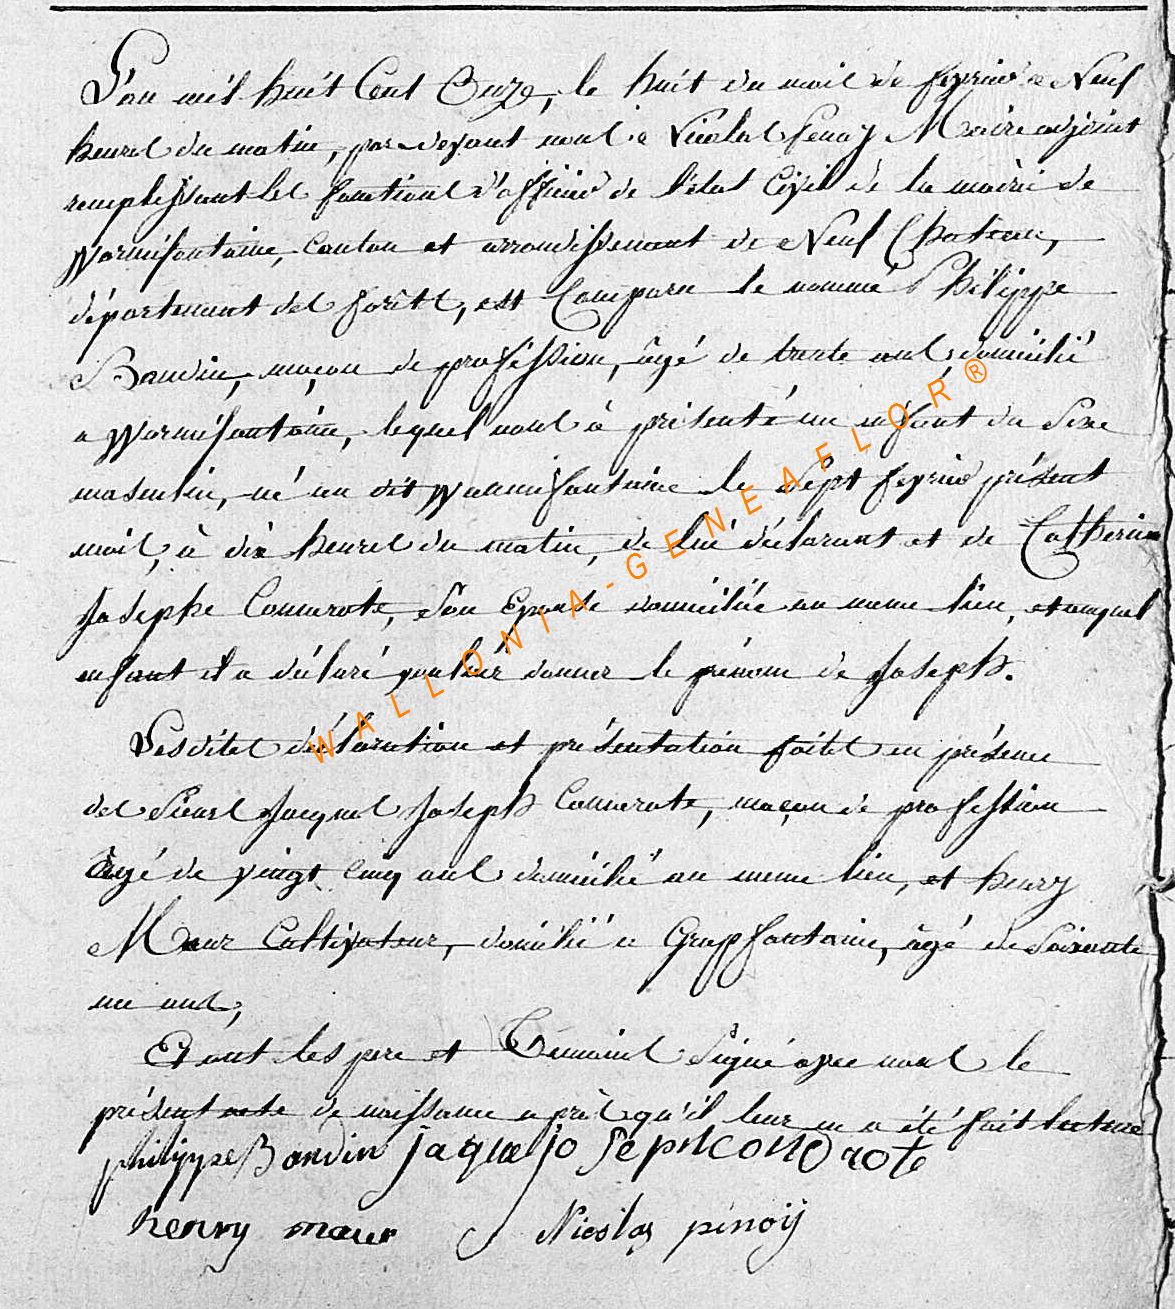 L'an mil huit Cent Onze, le huit du mois de fevrier a Neuf
heures du matin, par devant nous Nicolas Penoy Maire adjoint
remplissant les fonctions d'officier de l'etat Civil de la mairie de
Warmifontaine, canton et arrondissement de Neuf Chateau,
département des forêts, est Comparu le nommé Philippe
Baudin, maçon de profession, âgé de trente ans, domicilié
a Warmifontaine, lequel nous à présenté un enfant du Sexe
masculin, né au dit Warmifontaine le Sept fevrier présent
mois, à dix heures du matin, de lui déclarant et de Catherine
Josephe Conrote, Son Epouse domiciliée au meme lieu, et auquel
enfant il a déclaré vouloir donner le prénom de Joseph.
Lesdites déclaration et présentation faites en présence
des Sieurs Jacques Joseph Conrote, maçon de profession
âgé de vingt cinq ans domicilié au meme lieu, et henry
Maur Cultivateur, domicilié a Grapfontaine, âgé de Soixante
un ans,
Et ont les pere et Témoins Signé avec nous le
présent acte de naissance après qu'il leur en a été fait lecture
philippe Baudin jaque joseph conrote
henry maur Nicolas pinoij
WALLONIA-GENEAFLOR®